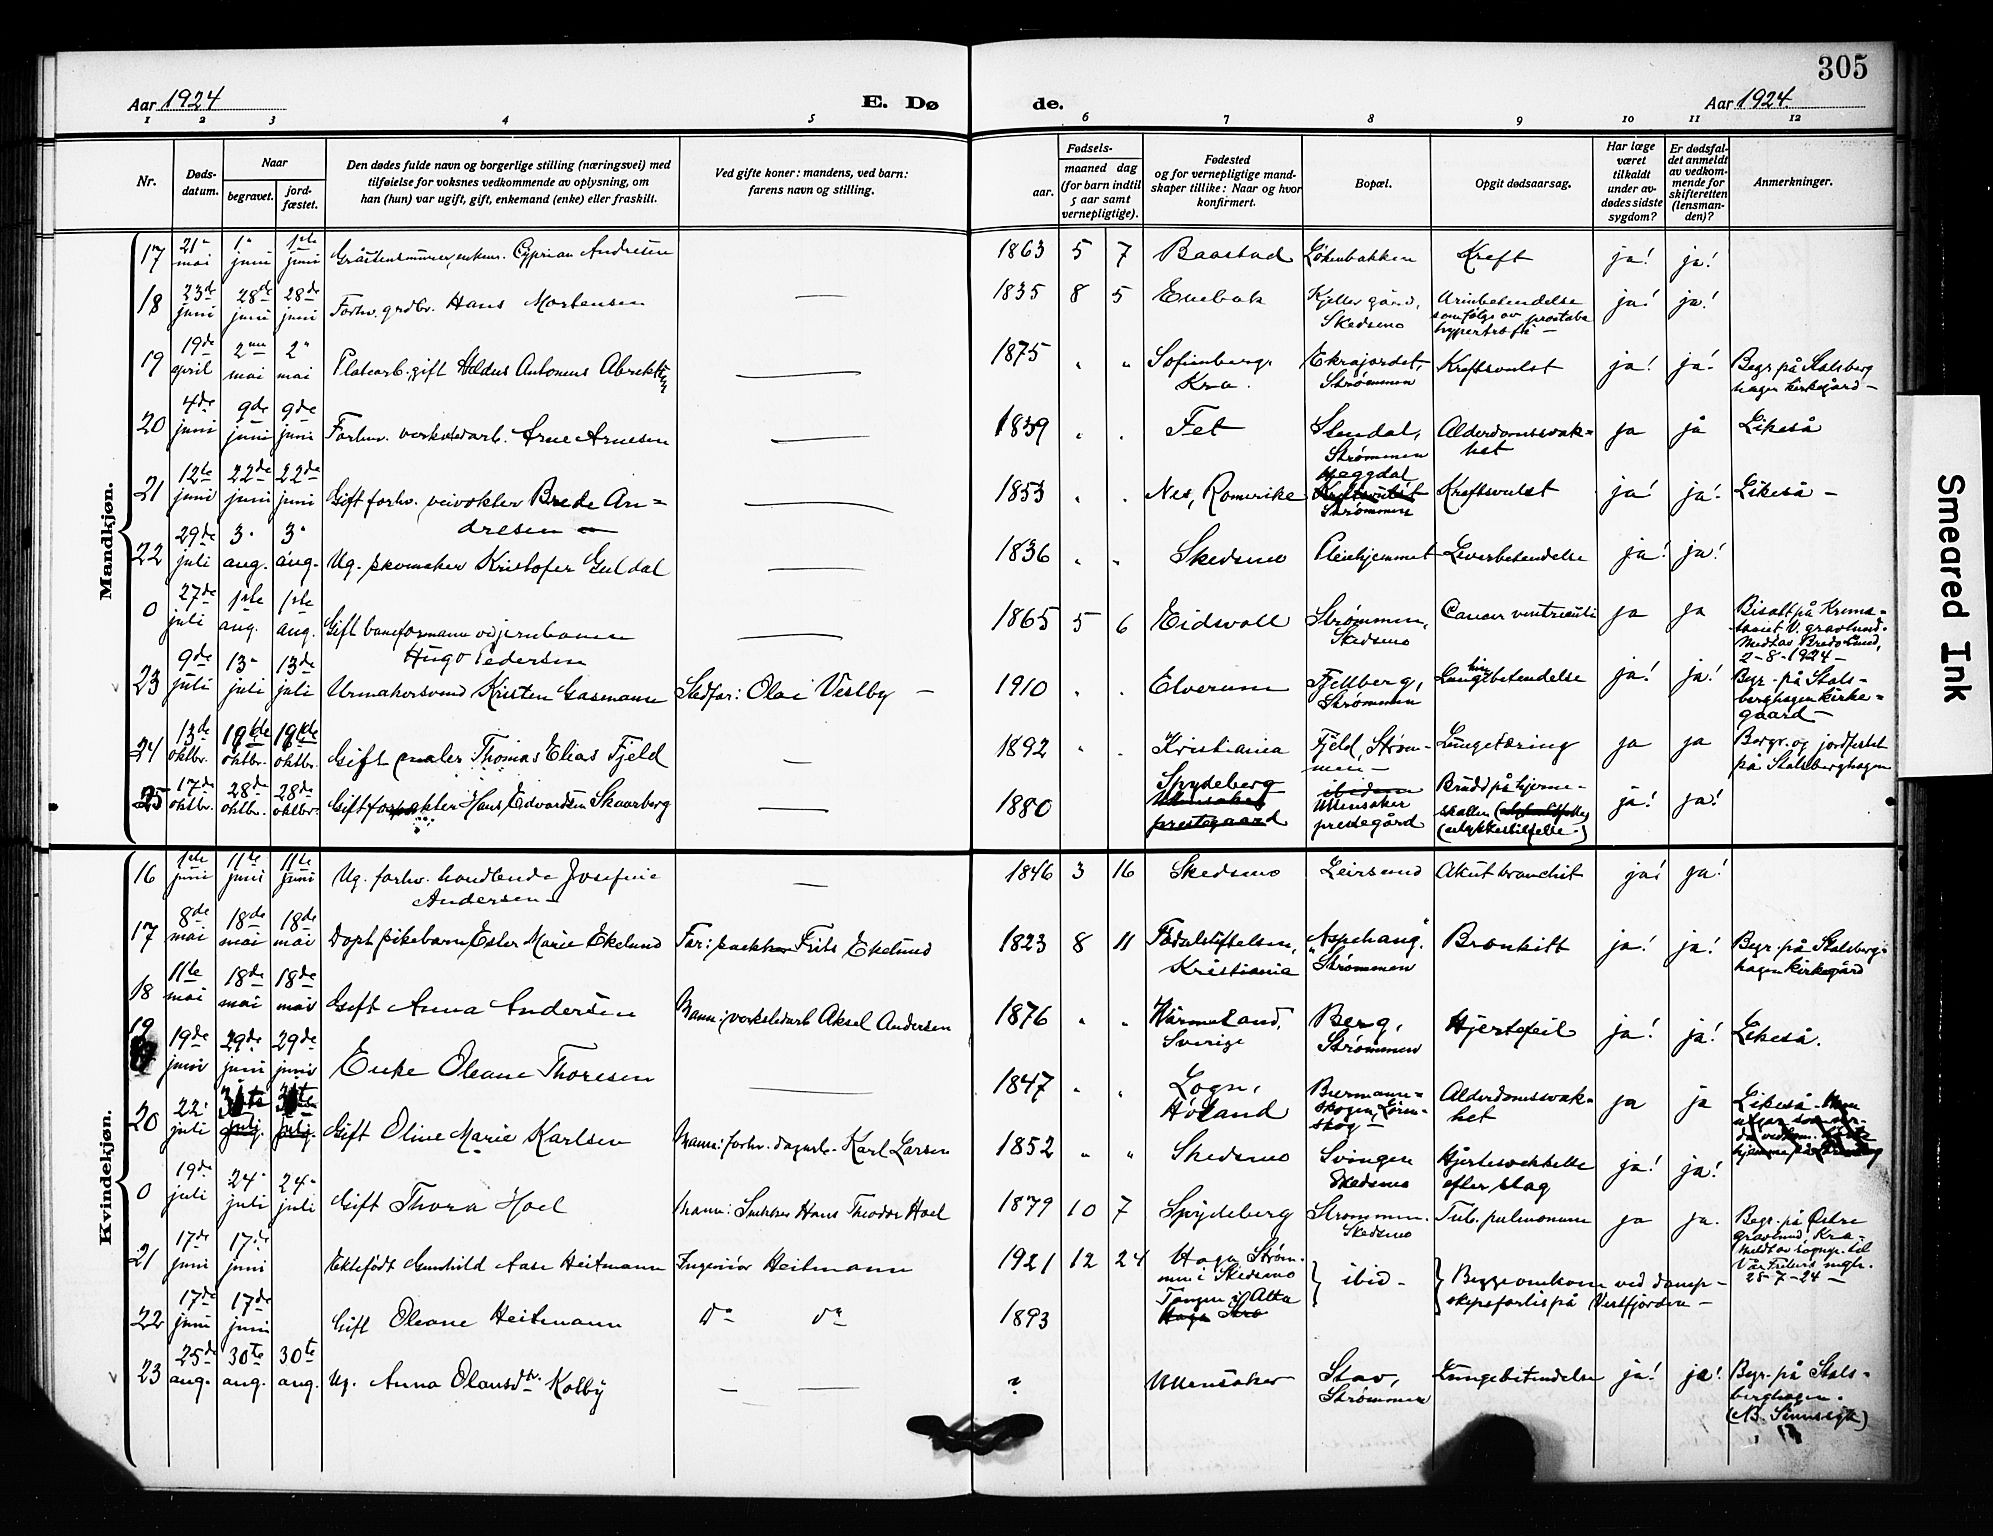 305
Aar 1924 E. Dø de. Aar 1924.
1 2 3 4 5 6 7 8 9 10 11 12
Nr. Døds-datum. Naar begravet. jord-fæstet. Den dødes fulde navn og borgerlige stilling (næringsvei) med tilføielse for voksnes vedkommende av oplysning, om han (hun) var ugift, gift, enkemand (enke) eller fraskilt. Ved gifte koner: mandens, ved barn: farens navn og stilling. Fødsels- aar. maaned dag (for barn indtil 5 aar samt vernepligtige). Fødested og for vernepligtige mand-skaper tillike: Naar og hvor konfirmert. Bopæl. Opgit dødsaarsag. Har læge været tilkaldt under av-dødes sidste sygdom? Er dødsfal-det anmeldt av vedkom-mende for skifteretten (lensman-den)? Anmerkninger.
Mandkjøn.
17 21 mai 1 juni 1ste juni Cyprian Andresen 1863 5 7 Baastad Løkenbakken Kreft ja! ja!
18 23de juni 28de juni 28de juni Forhv. grdbr. Hans Mortensen — 1835 8 5 Enebak Kjeller gård, Skedsmo Urinbetendelse som følge av prostata hypertrofi — ja! ja!
19 19de april 2nn mai 2" mai Platearb., gift Antonius — 1875 " " Sofienberg, Kra. Ekrajordet, Strømmen Kreftsvulst ja! ja! Begr. på Stalsberg hagen kirkegård —
20 4de juni 9de juni 9de juni Forhv. verkstedarb. Arne Arnesen — 1839 " " Fet Stendal, Strømmen Alderdomssvak=het ja ja Likeså
21 12te juni 22de juni 22de juni Gift forhv. veivokter Brede An=dresen — 1853 " " Nes, Romerike Strømmen Kreftsvulst ja! ja! Likeså —
22 29de juli 3" aug. 3" aug. Ug. skomaker Kristofer Guldal — 1836 " " Skedsmo Pleiehjemmet Leverbetendelse ja! ja!
0 27de juli 1ste aug. 1ste aug. Gift baneformann ved jernbanen Hugo Pedersen — 1865 5 6 Eidsvoll Strømmen, Skedsmo Cancer ventriculi ja ja Bisatt på Krema=toriet V. gravlund. 2-8-1924 —
23 9de juli 13" juli 13de juli Urmakersvend Kristen Gasmann Stedfar: Olai Vestby — 1910 " " Elverum Fjellberg, Strømmen ja! ja! Begr. på Stals=berghagen kirke=gaard —
24 13de oktbr. 19de oktbr. 19de oktbr. Gift maler Thomas Elias Fjeld — 1892 " " Kristiania Fjeld, Strøm-men — Lungetæring ja ja Begr. og jordfestet på Stalsberghagen
25 17de oktbr. 28de oktbr. 28de oktbr. Gift forpakter Hans Edvardsen Skaarberg — 1880 Spydeberg Ullensaker prestegaard ibidem Ullensaker prestegård Brudd på hjerne=skallen (ulykkestilfelle.) ja! ja!
Kvindekjøn.
16 1ste juni 11te juni 11te juni Ug. forhv. handlende Josefine Andersen — — 1846 3 16 Skedsmo Leirsund Akut bronchit ja! ja!
17 8de mai 18de mai 18de mai Døpt pikebarn Ester Marie Ekelund Far: Frits Ekelund 1823 8 11 Fødselstiftelsen, Kristiania Aspehaug, Strømmen Bronkitt ja! ja! Begr. på Stalsberg=hagen kirkegård
18 11te mai 18de mai 18de mai Gift Anna Andersen Mann: verkstedarb Aksel Andersen 1876 " " Värmeland, Sverige Berg, Strømmen Hjertefeil ja! ja! Likeså.
19 19de juni 29de juni 29de juni Enke Oleane Thoresen — 1847 " " Løgn, Høland Alderdomssvak=het ja ja Likeså
20 22" juli juli juli Gift Oline Marie Karlsen Mann: forhv. dagarb. Karl Larsen 1852 " " Skedsmo Svingen Skedsmo Hjertesvekkelse efter slag ja! ja!
0 19de juli 24" juli 24" juli Gift Thora Hoel Mann: Hans Theodor Hoel 1879 10 7 Spydeberg Strømmen. Skedsmo Tub. pulmonum ja ja. Begr. på Østre gravlund, Kra= Meldt av sognepr. til Vår Frelsers mgh. 28-7-24 —
21 17de juni 17de juni Ektefødt Gunhild Aase Heitmann Ingeniør Heitmann 1921 12 24 Haga, Strøm-men i Skedsmo ibid — Begge omkom ved damp=skipsforlis på Vestfjorden —
22 17de juni 17de juni Gift Oleane Heitmann Do Do 1893 Tangen i Alta
23 25de aug. 30te aug. 30te aug. Ug. Anna Olausdtr. Kolby — — ? Ullensaker Stav, Strømmen Lungebetendelse ja! ja! Begr. på Stals=berghagen.
Smeared Ink